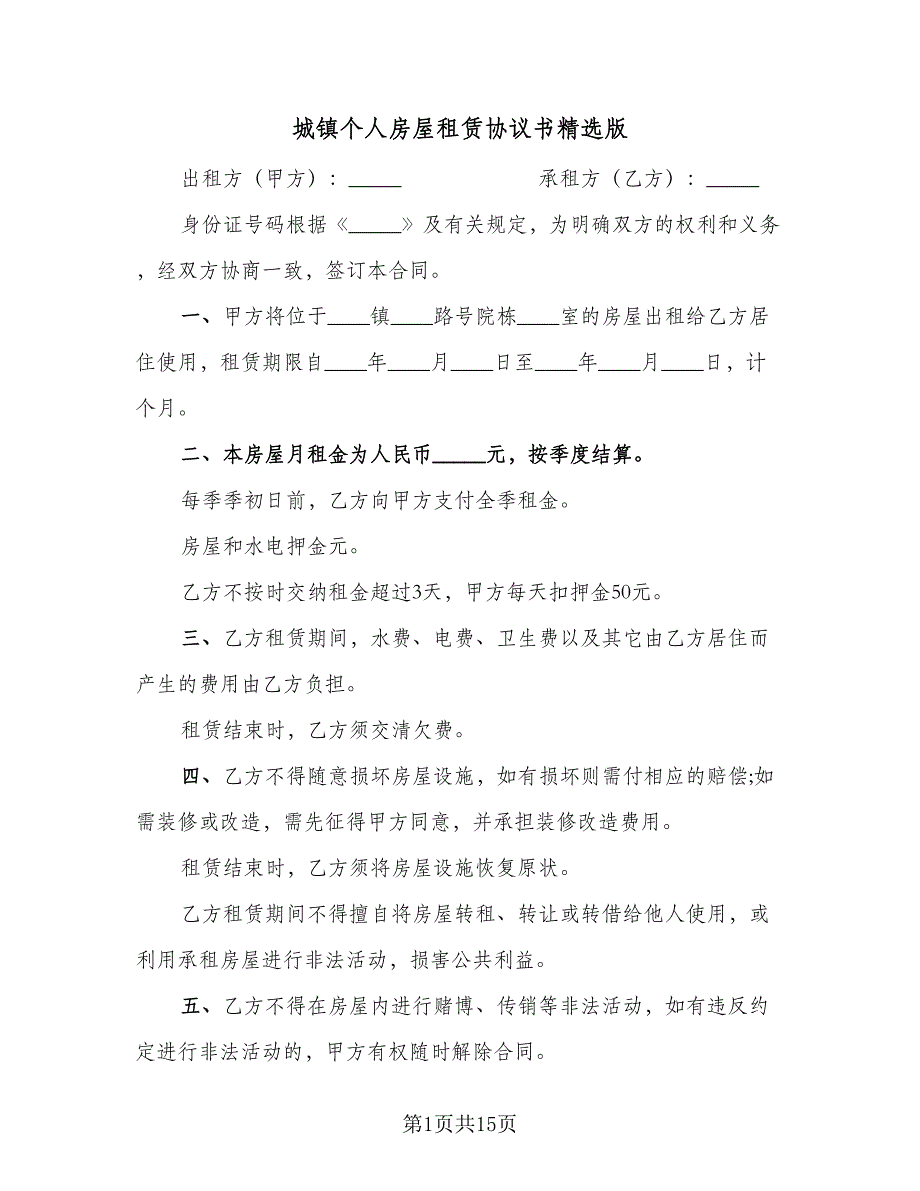 城镇个人房屋租赁协议书精选版
出租方（甲方）：_____ 承租方（乙方）：_____
身份证号码根据《_____》及有关规定，为明确双方的权利和义务
，经双方协商一致，签订本合同。
一、甲方将位于____镇____路号院栋____室的房屋出租给乙方居
住使用，租赁期限自____年____月____日至____年____月____日，计
个月。
二、本房屋月租金为人民币_____元，按季度结算。
每季季初日前，乙方向甲方支付全季租金。
房屋和水电押金元。
乙方不按时交纳租金超过3天，甲方每天扣押金50元。
三、乙方租赁期间，水费、电费、卫生费以及其它由乙方居住而
产生的费用由乙方负担。
租赁结束时，乙方须交清欠费。
四、乙方不得随意损坏房屋设施，如有损坏则需付相应的赔偿;如
需装修或改造，需先征得甲方同意，并承担装修改造费用。
租赁结束时，乙方须将房屋设施恢复原状。
乙方租赁期间不得擅自将房屋转租、转让或转借给他人使用，或
利用承租房屋进行非法活动，损害公共利益。
五、乙方不得在房屋内进行赌博、传销等非法活动，如有违反约
定进行非法活动的，甲方有权随时解除合同。
第1页共15页